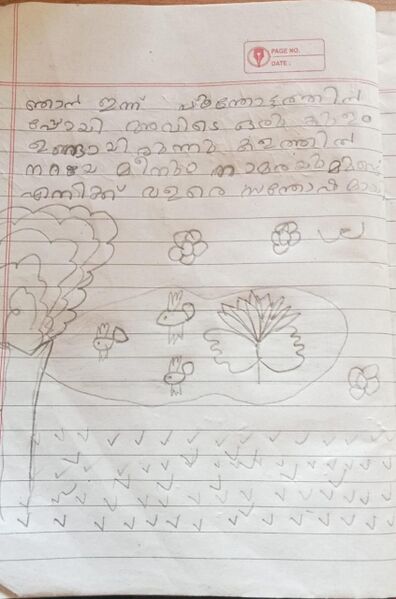 PAGE NO.
DATE :
ഞാൻ ഇന്ന് പൂന്തോട്ടത്തിൽ
പോയി അവിടെ ഒരു കുളം
ഉണ്ടായിരുന്നു കുളത്തിൽ
നിറയെ മീനും താമരയുമുണ്ട്
എനിക്ക് വളരെ സന്തോഷമായി